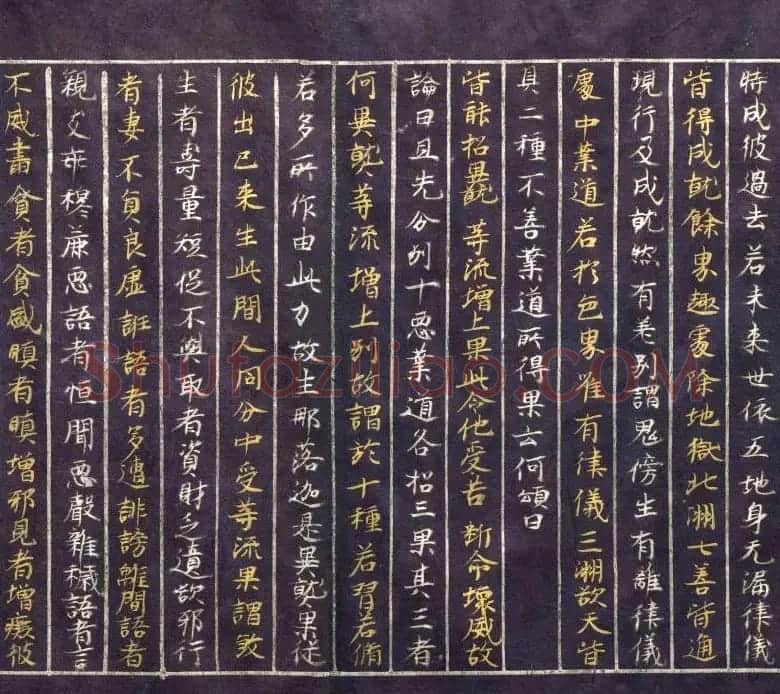 時成彼過去若未来世依五地身无漏律儀
皆得成就餘界趣處除地獄北洲七善皆通
現行及成就然有差別謂鬼傍生有離律儀
處中業道若於色界唯有律儀三洲欲天皆
具二種不善業道所得果云何頌曰
皆能招異熟 等流增上果此令他受苦 斷命壞威故
論曰且先分別十惡業道各招三果其三者
何異熟等流增上別故謂於十種若習若脩
若多所作由此力故生那落迦是異熟果従
彼出已来生此間人同分中受等流果謂敩
生者壽量短促不與取者資財乏遺欲邪行
者妻不負良虛誑語者多遭誹謗離間語者
親友乖穆麁惡語者恒聞惡聲雜穢語者言
不威肅貪者貪盛瞋者瞋增邪見者增癡彼
Shufaziliao.COM